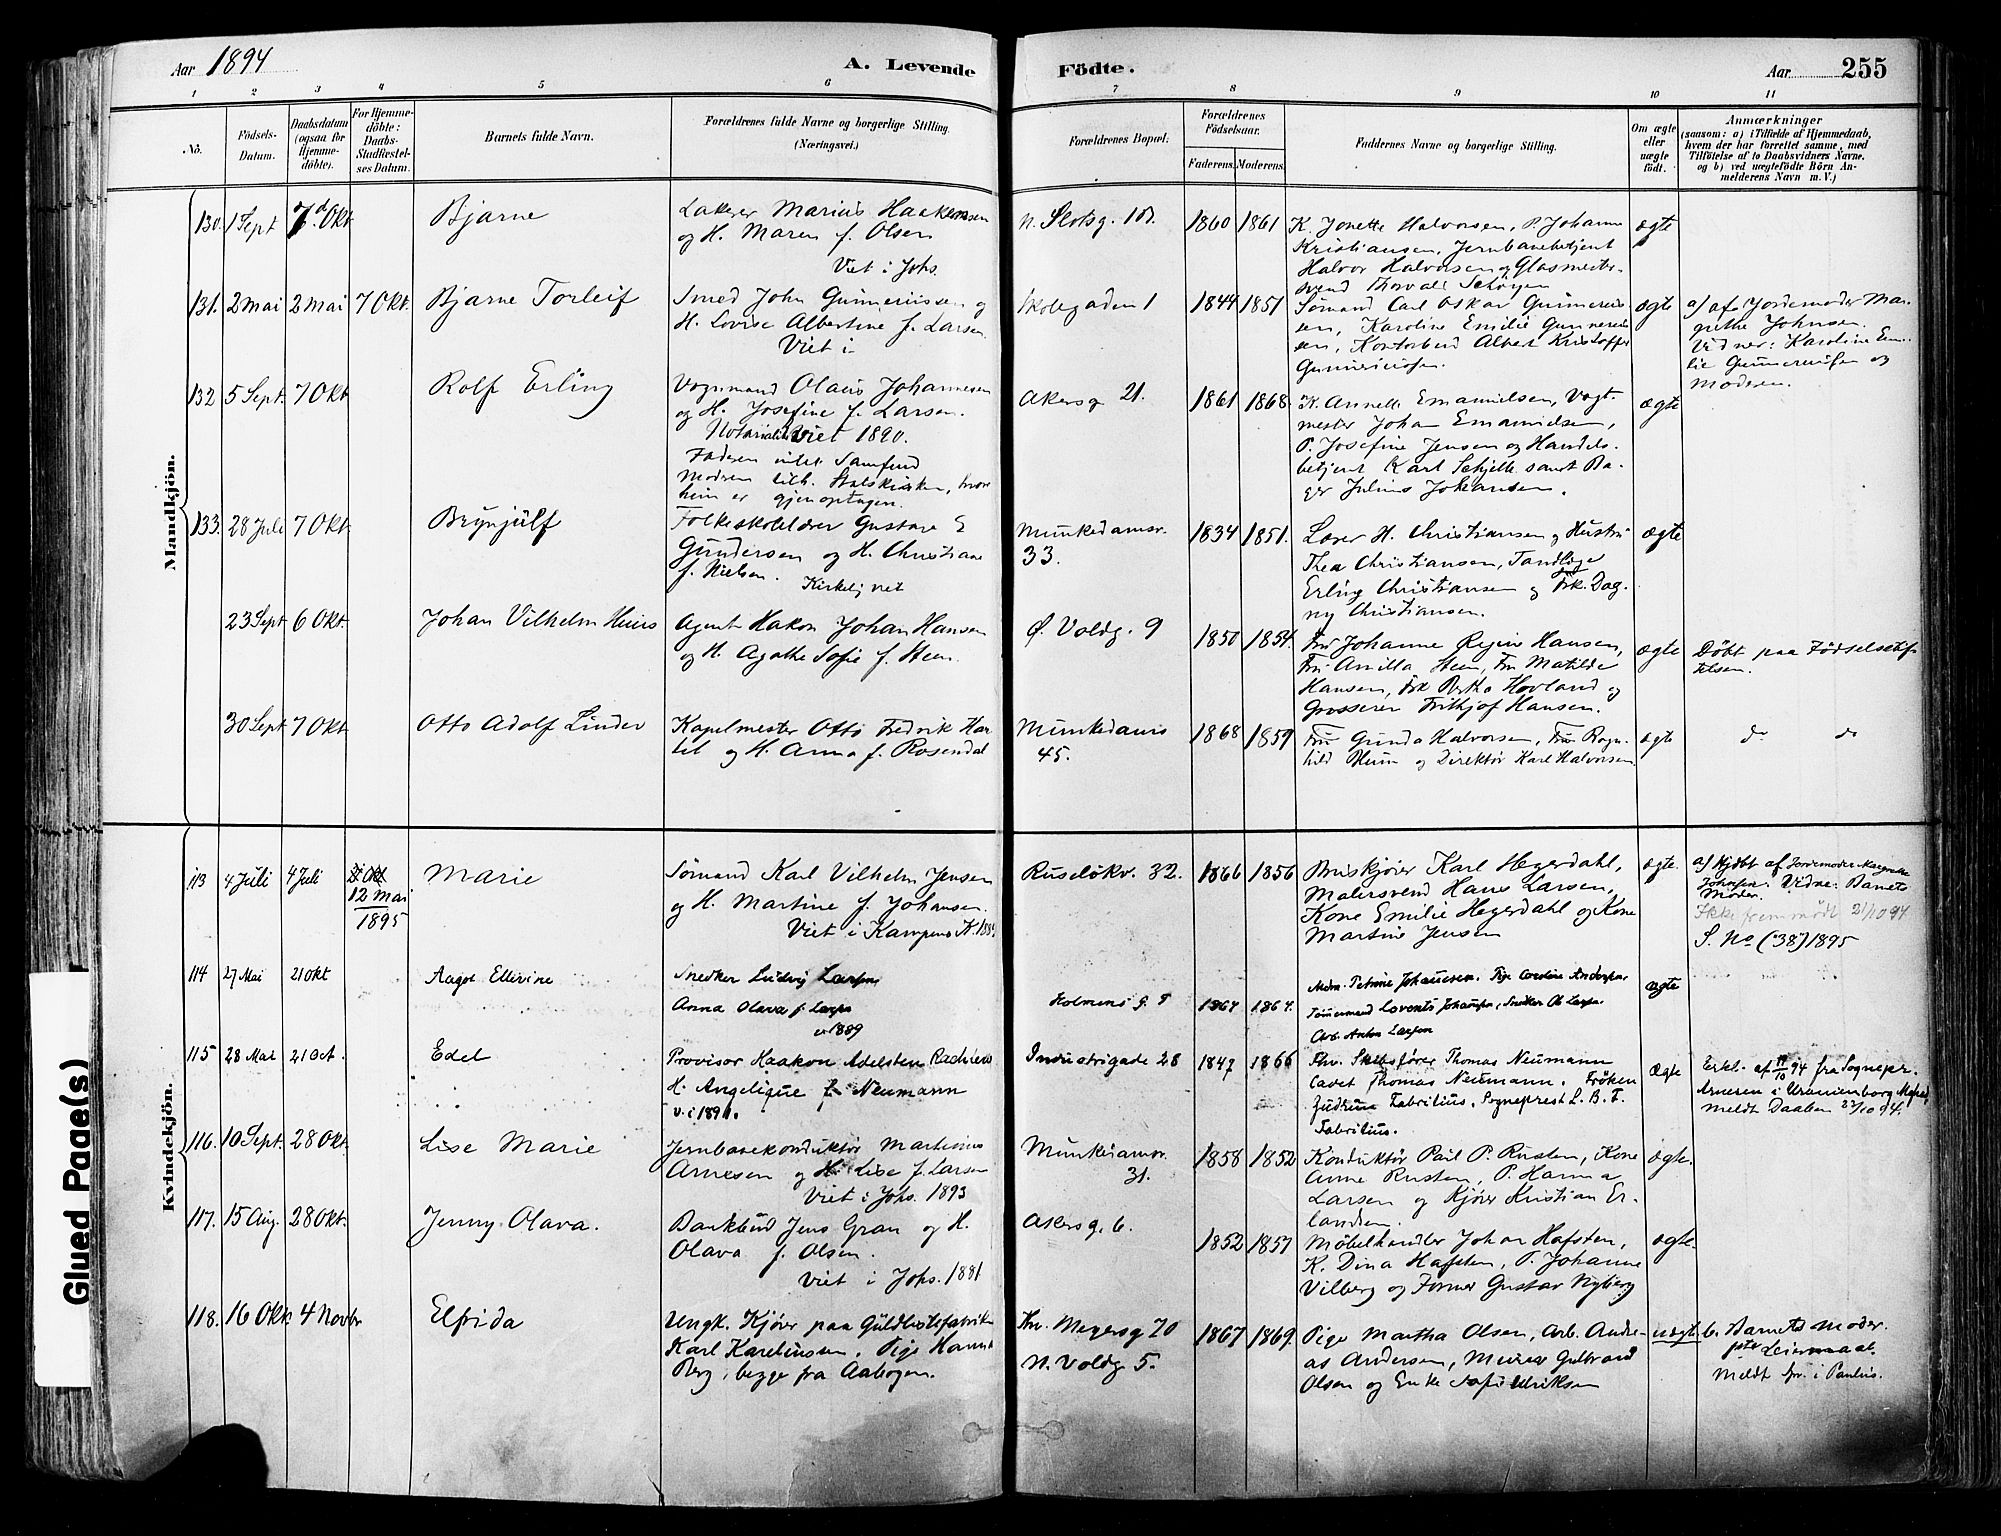 Aar 1894
A. Levende Födte.
Aar 255
1 2 3 4 5 6 7 8 9 10 11
No.
Födsels-Datum.
Daabsdatum (ogsaa for Hjemmedöbte).
For Hjemmedöbte: Daabs-Stadfæstelses Datum.
Barnets fulde Navn.
Forældrenes fulde Navne og borgerlige Stilling. (Næringsvei.)
Forældrenes Bopæl.
Forældrenes Födselsaar.
Faderens. Moderens.
Faddernes Navne og borgerlige Stilling.
Om ægte eller uægte födt.
Anmærkninger
(saasom: a) i Tilfælde af Hjemmedaab, hvem der har forrettet samme, med Tilföielse af to Daabsvidners Navne, og b) ved uægtefödte Börn Anmelderens Navn m. V.)
Mandkjön.
130. 1 Sept 7de Okt. Bjarne
Lakerer Marius Haakensen
og H. Maren f. Olsen
Viet i Johs.
N. Slotsg. 1860 1861
K. Jonette Halvorsen, P. Johanne
Kristiansen, Jernbanebetjent
Halvor Halvorsen og Glasmester-
svend Thorvald
ægte
131. 2 Mai 2 Mai 7 Okt. Bjarne Torleif
Smed John Gunneriussen og
H. Lovise Albertine f. Larsen.
Viet i
Skolegaden 1 1844 1851
Sømand Carl Oskar Gunnerius-
sen, Karoline Emilie Gunnerius-
sen, Kontorbud Albert Kristoffer
Gunneriussen.
ægte
a) af Jordemoder Mar-
grethe Johnsen.
Vidner: Karoline Emi-
lie Gunneriussen og
Moderen.
132 5 Sept. 7 Okt. Rolf Erling
Vognmand Olaus Johannesen
og H. Josefine f. Larsen.
Notarialt viet 1890.
Faderen intet Samfund
Moderen tilh. Statskirken, hvor
hun er gjenoptagen.
Akersg 21. 1861 1868
K. Annette Emanuelsen, Vagt-
mester Johan Emanuelsen,
P. Josefine Jensen og Handels-
betjent Karl samt Ba-
ger Julius Johansen.
ægte
133. 28 Juli 7 Okt. Brynjulf
Folkeskolelærer Gustave E
Gundersen og H. Christiane
f. Nielsen. Kirkelig viet
Munkedamsv. 33. 1834 1851.
Lærer H. Christiansen og Hustru
Thea Christiansen, Tandlæge
Erling Christiansen og Frk. Dag-
ny Christiansen.
ægte
23 Sept 6 Okt. Johan Vilhelm
Agent Hakon Johan Hansen
og H. Agathe Sofie f. Steen.
Ø. Voldg. 9 1850 1854.
Fru Johanne Regine Hansen,
Fru Amilla Steen, Fru Matilde
Hansen, Frk Bertha Hovland og
Grosserer Frithjof Hansen.
ægte
Döbt paa Fødselsstif-
telsen.
30 Sept 7 Okt. Otto Adolf Linder
Kapelmester Otto Fredrik Har-
tel og H. Anna f. Rosendal
Munkedamv 45. 1868 1859
Fru Gunda Halvorsen, Fru Ragn-
hild Blum og Direktør Karl Halvorsen
ægte do do
Kvindekjön.
113 4 Juli 4 Juli 12 Mai 1895 Marie
Sømand Karl Vilhelm Jensen
og H. Martine f. Johansen.
Viet i Kampens K.
Ruseløkv. 32. 1866 1856
Briskjører Karl Hegerdahl,
Malersvend Hans Larsen,
Kone Emilie Hegerdahl og Kone
Martine Jensen
ægte
a) Hjdøbt af Jordemoder Margrethe
Johnsen. Vidne: Barnets
Moder.
Ikke fremmødt 21/10 94
S. No (38) 1895
114 27 Mai 21 Okt Aagot Ellevine
Snedker Ludvig Larsen
Anna Olava f. Larsen
v 1889
Holmens g. 1867 1864.
Mdm. Petrine Johannesen. Pige Caroline Andersen.
Tømmermand Lorents Johansen, Snedker Ole Larsen.
Arb. Anton Larsen
ægte
115 28 Mai 21 Oct. Edel
Provisor Haakon Adelsten
H. Angelique f. Neumann
v. i 1891.
Industrigade 28 1847 1866
Fhv. Skibsfører Thomas Neumann
Cadet Thomas Neumann. Frøken
Gudrun Fabritius. Sogneprest L. B. F.
Fabritius.
Ægte
Erkl. af 94 fra Sognepr.
Arnesen i Uranienborg Meghed
Meldt Daaben 22/10 94.
116. 10 Sept. 28 Okt. Lise Marie
Jernbanekonduktør Martinius
Arnesen og H. Lise f. Larsen
Viet i Johs. 1893
Munkedamsv. 31. 1858 1852
Konduktør Paul P. Rusten, Kone
Anne Rusten, P. Hanna
Larsen og Kjører Kristian Er-
landsen.
ægte.
117. 15 Aug. 28 Okt. Jenny Olava.
Bankbud Jens Gran og H.
Olava f. Olsen.
Viet i Johs. 1881
Akersg. 6. 1852 1857
Møbelhandler Johan Hafsten,
K. Dina Hafsten, P. Johanne
Vilberg og Former Gustav Nyberg
ægte.
118. 16 Okt. 4 Novbr Elfrida
Ungk. Kjører paa Guldlistefabrik
Karl Kareliussen, Pige Hanna
Berg, begge fra Aabogen.
Thv. Meyersg 70
N. Voldg 5. 1867 1869.
Pige Martha Olsen, Arb. Andre-
as Andersen, Murer Gulbrand
Olsen og Enke Sofie Eriksen
uægte
b. Barnets Moder.
Leiermaal.
Meldt fvr. i Paulus.
Glued Page(s)